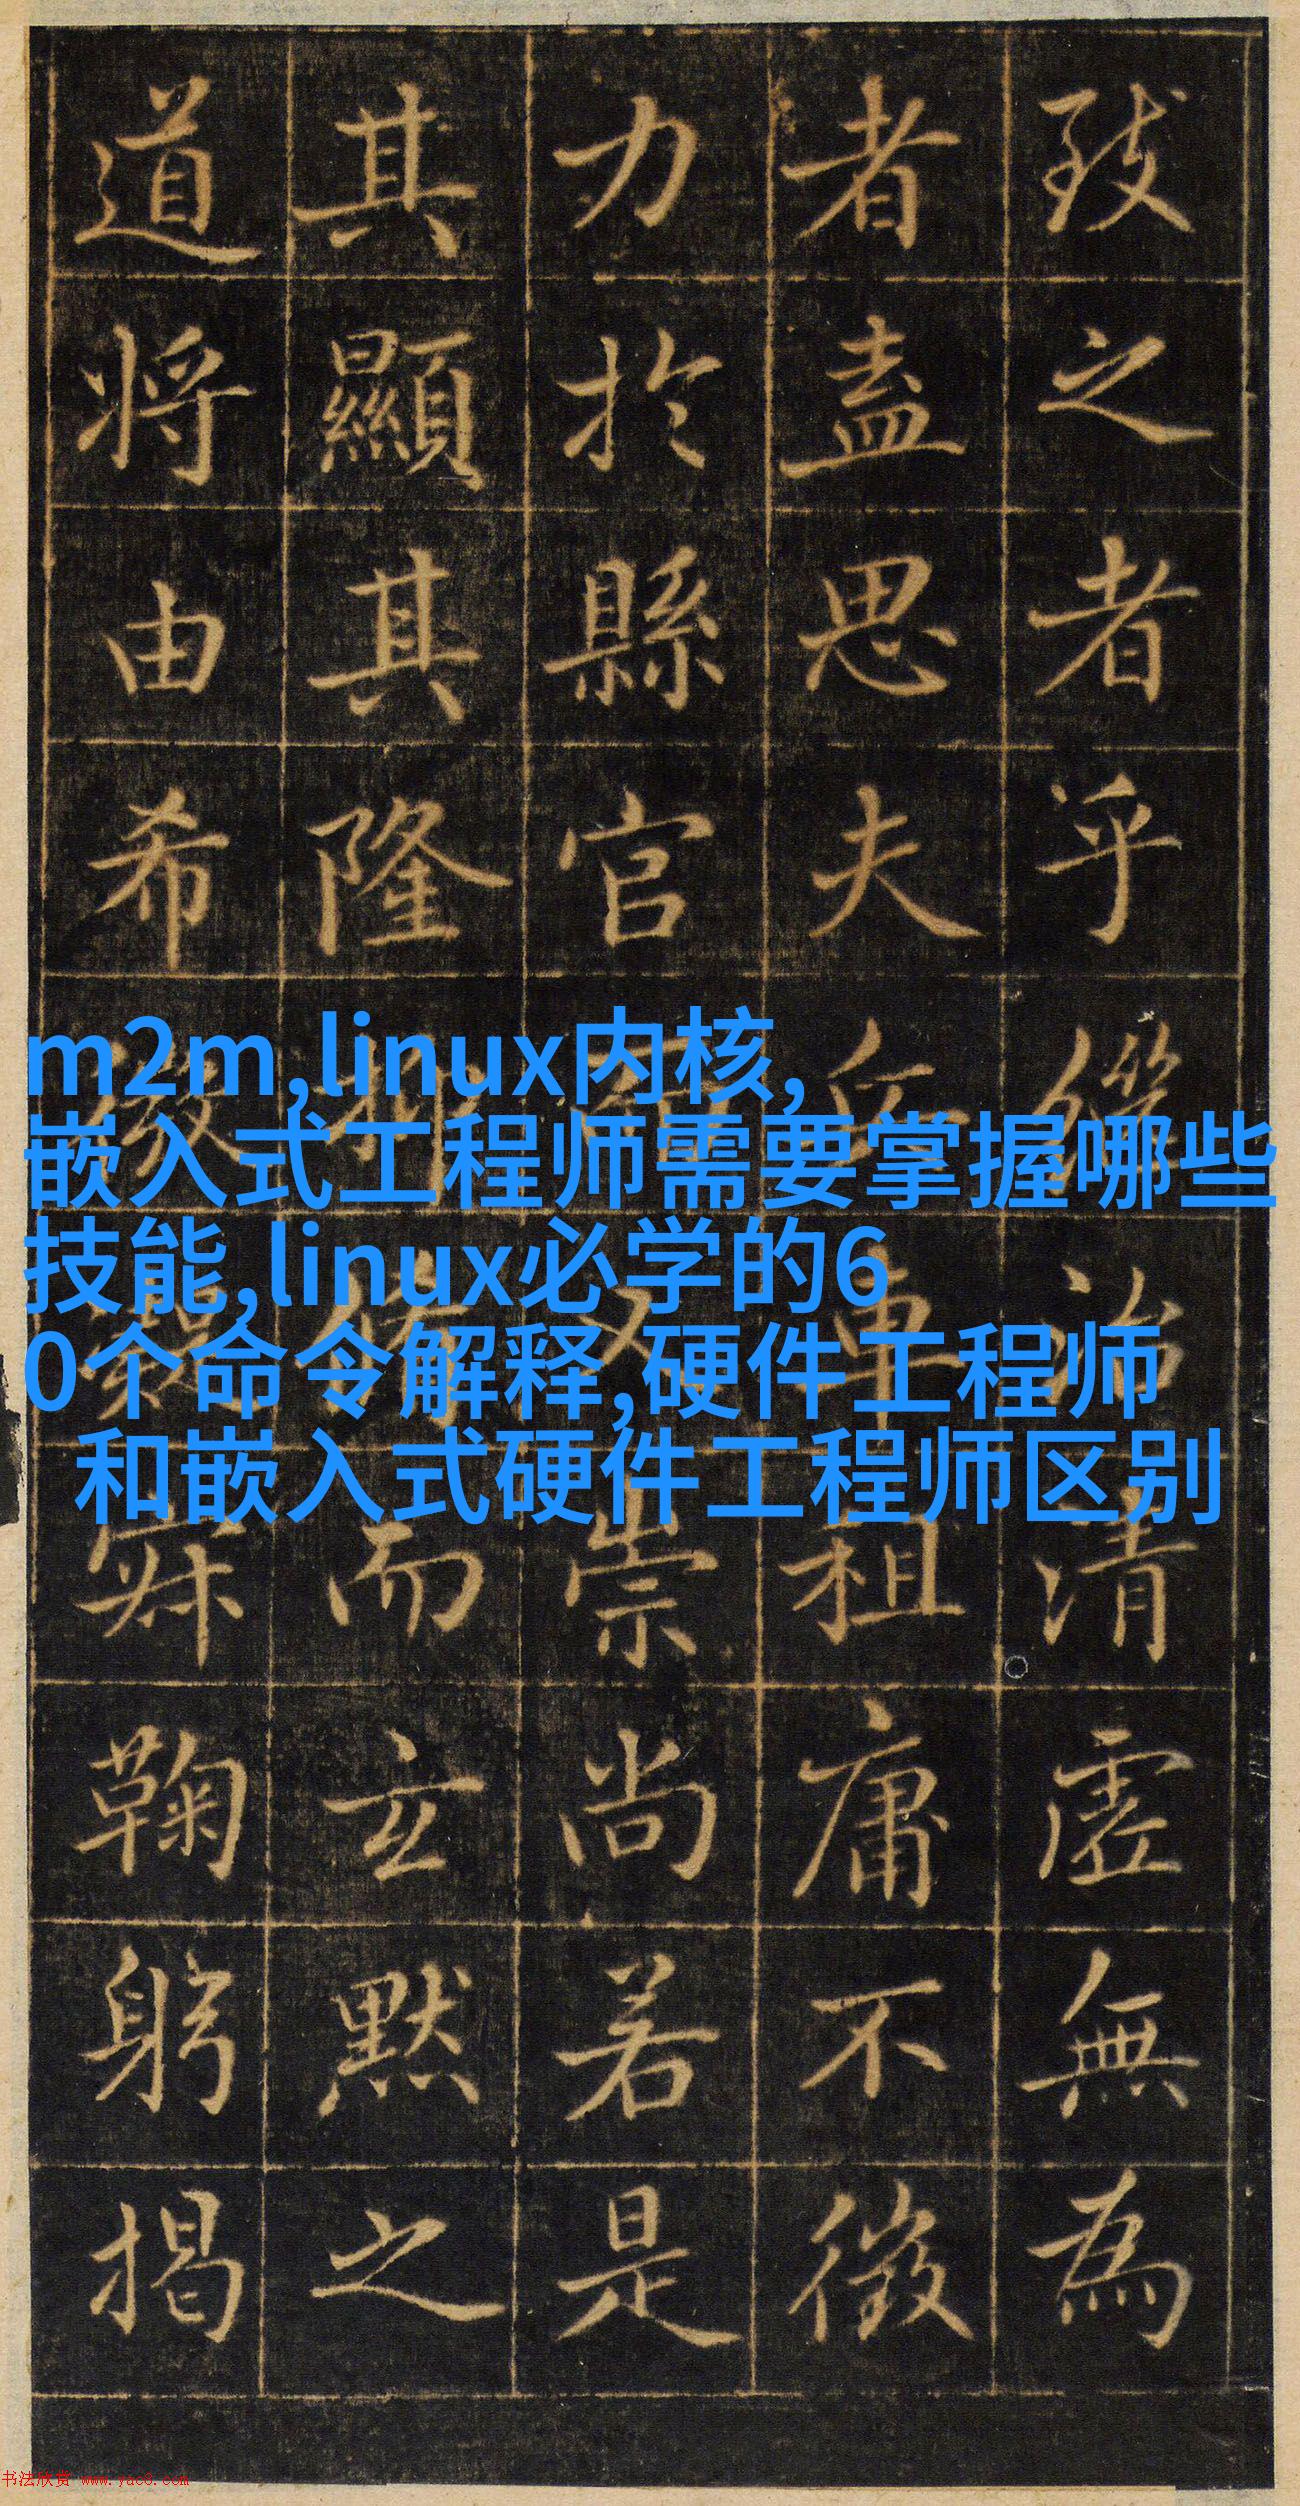 致之者乎治清虛無為
者盡思夫兵車租庸不徵
力於縣官又崇尚若是
其顯其隆而玄默之
道將由希鞠躬揭
m2m,linux内核,
嵌入式工程师需要掌握哪些
技能,linux必学的6
0个命令解释,硬件工程师
和嵌入式硬件工程师区别
书法欣赏 www.yac8.com